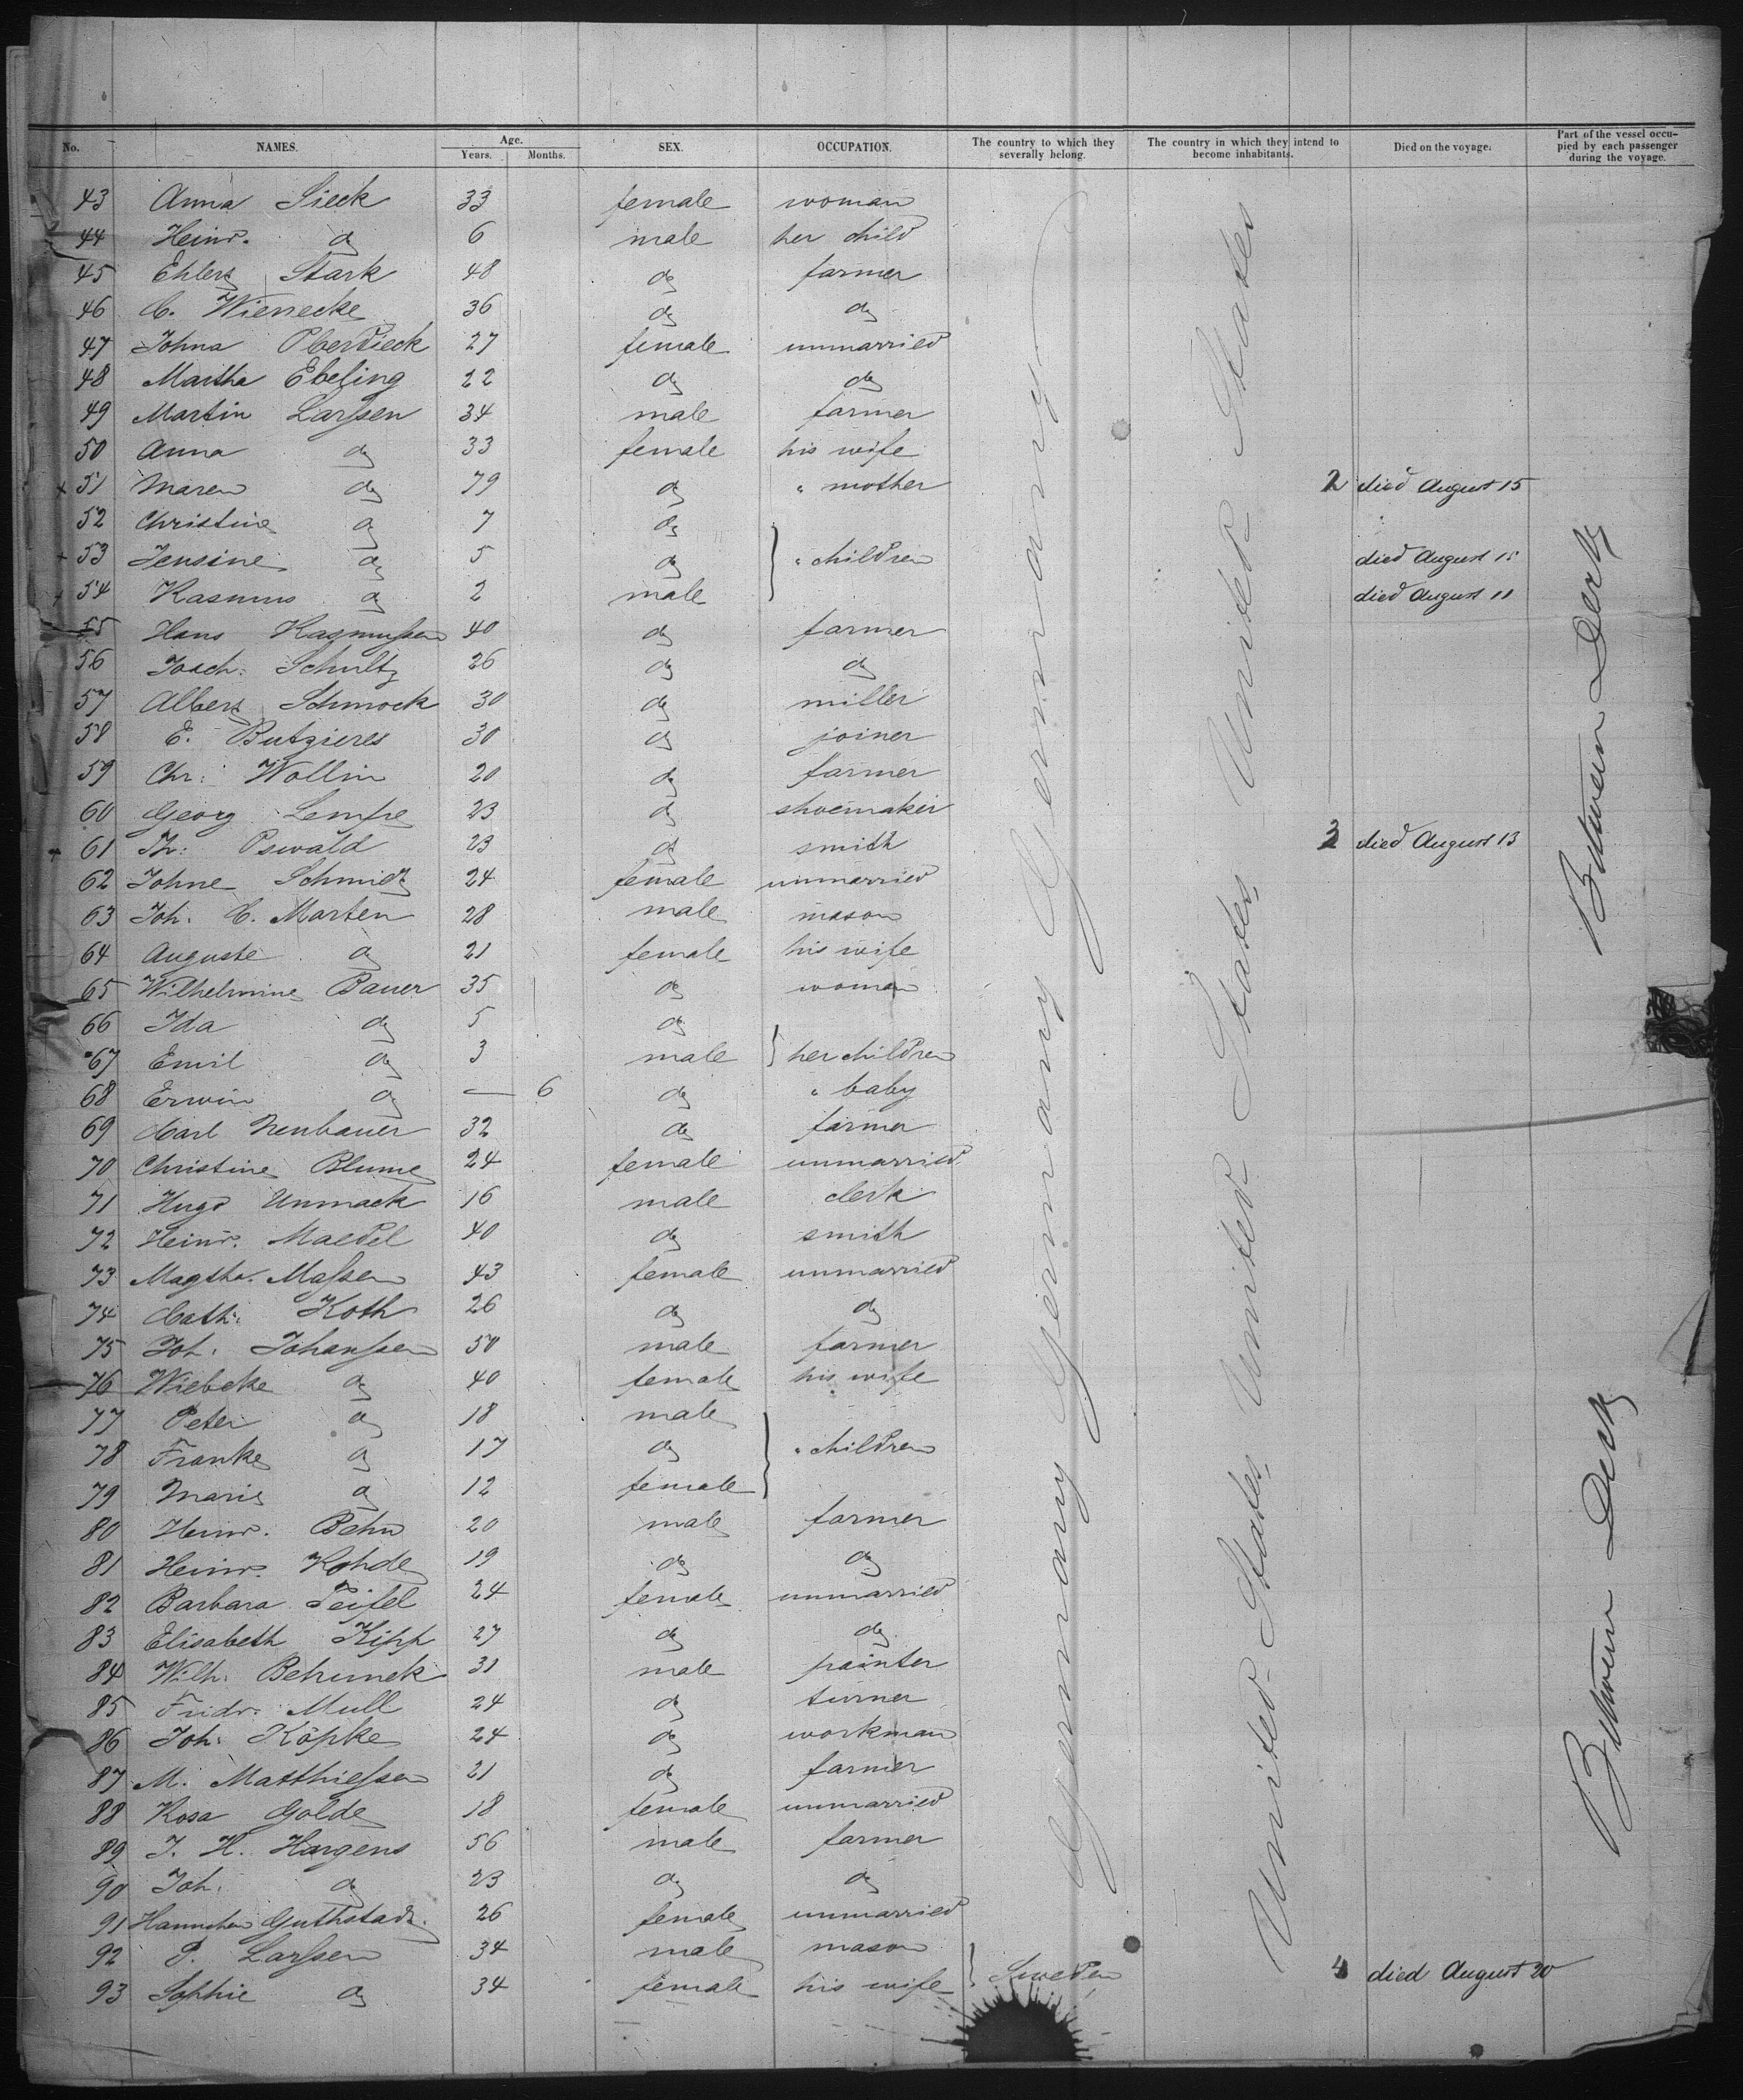 No. NAMES. Age. Years. Months. SEX. OCCUPATION. The country to which they severally belong. The country in which they intend to become inhabitants. Died on the voyage. Part of the vessel occupied by each passenger during the voyage.
43 Anna Sieck 33 female woman
44 Heinr. do 6 male her child
45 Ehlers Stark 48 do farmer
46 C. Wienecke 36 do do
47 Johna Oberdieck 27 female unmarried
48 Martha Ebeling 22 do do
49 Martin Larssen 34 male farmer
50 Anna do 33 female his wife
+ 51 Maren do 79 do " mother 2 died August 15
52 Christine do 7 do
+ 53 Jensine do 5 do " children died August 15
+ 54 Rasmus do 2 male died August 11
55 Hans Rasmussen 40 do farmer
56 Joach. Schultz 26 do do
57 Albert Schmock 30 do miller
58 E. Butzieres 30 do joiner
59 Chr. Wollin 20 do farmer
60 Georg Lempe 23 do shoemaker
+ 61 Th. Oswald 23 do smith 3 died August 13
62 Johne Schmidt 24 female unmarried
63 Joh. C. Marten 28 male mason
64 Auguste do 21 female his wife
65 Wilhelmine Bauer 35 do woman
66 Ida do 5 do
67 Emil do 3 male her children
68 Erwin do — 6 do " baby
69 Carl Neubauer 32 do farmer
70 Christine Blume 24 female unmarried
71 Hugo Unmack 16 male clerk
72 Heinr. Maedel 40 do smith
73 Magtha. Massen 43 female unmarried
74 Cath. Koth 26 do do
75 Joh. Johanssen 50 male farmer
76 Wiebcke do 40 female his wife
77 Peter do 18 male
78 Franke do 17 do " children
79 Marie do 12 female
80 Heinr. Behn 20 male farmer
81 Heinr. Rohde 19 do do
82 Barbara Teifel 24 female unmarried
83 Elisabeth Kipp 27 do do
84 Wilh. Behrmek 31 male painter
85 Fridr. Mull 24 do turner
86 Joh. Köpke 24 do workman
87 M. Matthiessen 21 do farmer
88 Rosa Golde 18 female unmarried
89 J. H. Hargens 56 male farmer
90 Joh. do 23 do do
91 Hannchen Guthstadt. 26 female unmarried
92 P. Larssen 34 male mason
93 Sophie do 34 female his wife Sweden 4 died August 20
Germany Germany Germany
United States United States United States
Between Deck
Between Deck